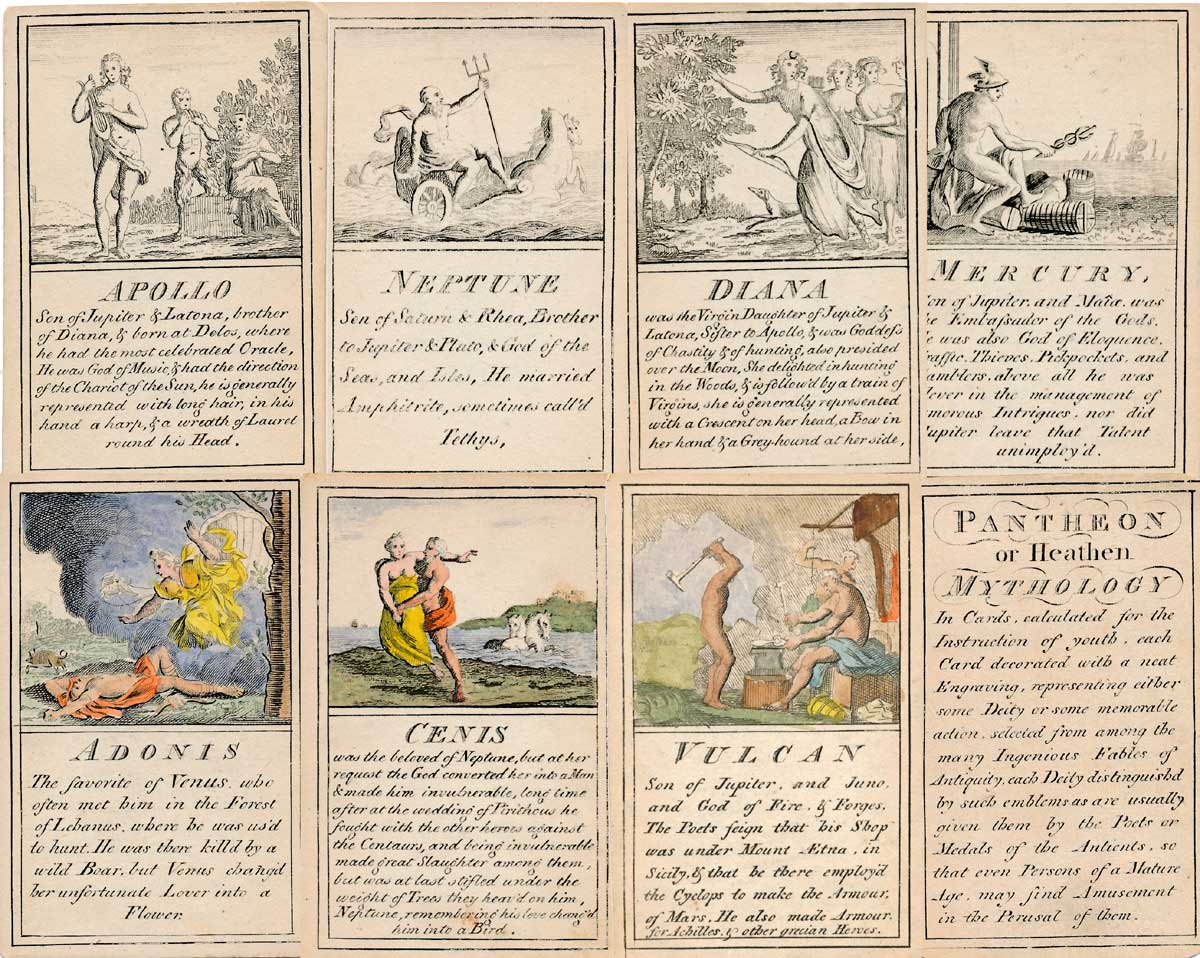 APOLLO
Son of Jupiter & Latona, brother
of Diana, & born at Delos, where
he had the most celebrated Oracle,
He was God of Music, & had the direction
of the Chariot of the Sun, he is generally
represented with long hair, in his
hand a harp, & a wreath of Laurel
round his Head.
NEPTUNE
Son of Saturn & Rhea, Brother
to Jupiter & Pluto, & God of the
Seas, and Isles, He married
Amphitrite, sometimes call'd
Tethys,
DIANA
was the Virgin Daughter of Jupiter &
Latona, Sister to Apollo, & was Goddeſs
of Chastity & of hunting, also presided
over the Moon, She delighted in hunting
in the Woods, & is follow'd by a train of
Virgins, she is generally represented
with a Crescent on her head, a Bow in
her hand & a Grey-hound at her side,
MERCURY,
on of Jupiter, and Maïa, was
e Embaſsador of the Gods.
e was also God of Eloquence,
raffic, Thieves, Pickpockets, and
amblers, above all he was
lever in the management of
morous Intrigues, nor did
upiter leave that Talent
unimploy'd.
ADONIS
The favorite of Venus, who
often met him in the Forest
of Lebanus, where he was us'd
to hunt. He was there kill'd by a
wild Boar, but Venus chang'd
her unfortunate Lover into a
Flower.
CENIS
was the beloved of Neptune, but at her
request the God converted her into a Man
& made him invulnerable, long time
after at the wedding of Pirithous he
fought with the other heroes against
the Centaurs, and being invulnerable
made great Slaughter among them,
but was at last stifled under the
weight of Trees they heav'd on him,
Neptune, remembering his love chang'd
him into a Bird.
VULCAN
Son of Jupiter, and Juno,
and God of Fire, & Forges.
The Poets feign that his Shop
was under Mount Ætna, in
Sicily, & that he there employ'd
the Cyclops to make the Armour,
of Mars. He also made Armour,
for Achilles, & other grecian Heroes.
PANTHEON
or Heathen
MYTHOLOGY
In Cards, calculated for the
Instruction of youth, each
Card decorated with a neat
Engraving, representing either
some Deity or some memorable
action, selected from among the
many Ingenious Fables of
Antiquity, each Deity distinguish'd
by such emblems as are usually
given them by the Poets or
Medals of the Antients, so
that even Persons of a Mature
Age, may find Amusement
in the Perusal of them.